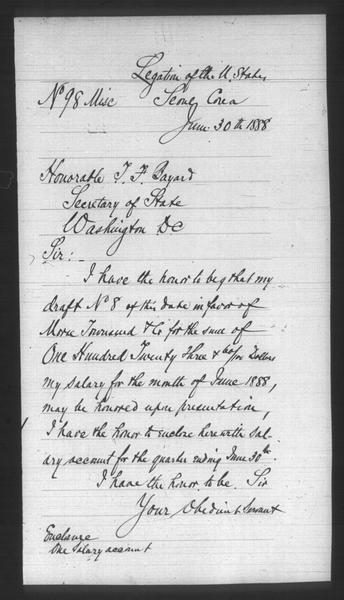 Legation of the U. States
No 98 Misc Seoul Corea
June 30th 1888
Honorable T. F. Bayard
Secretary of State
Washington DC
Sir:-
I have the honor to beg that my
draft No 8 of this date in favor of
Morse Townsend & Co for the sum of
One Hundred Twenty Three & 60/100 Dollars
my salary for the month of June 1888,
may be honored upon presentation,
I have the honor to enclose herewith sal-
ary account for the quarter ending June 30th.
I have the honor to be Sir
Your Obedient Servant
Enclosure
One Salary account